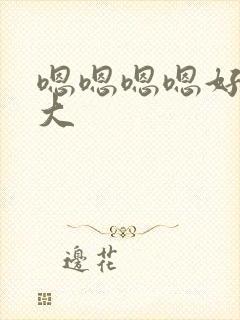 嗯嗯嗯嗯好
大
邊花